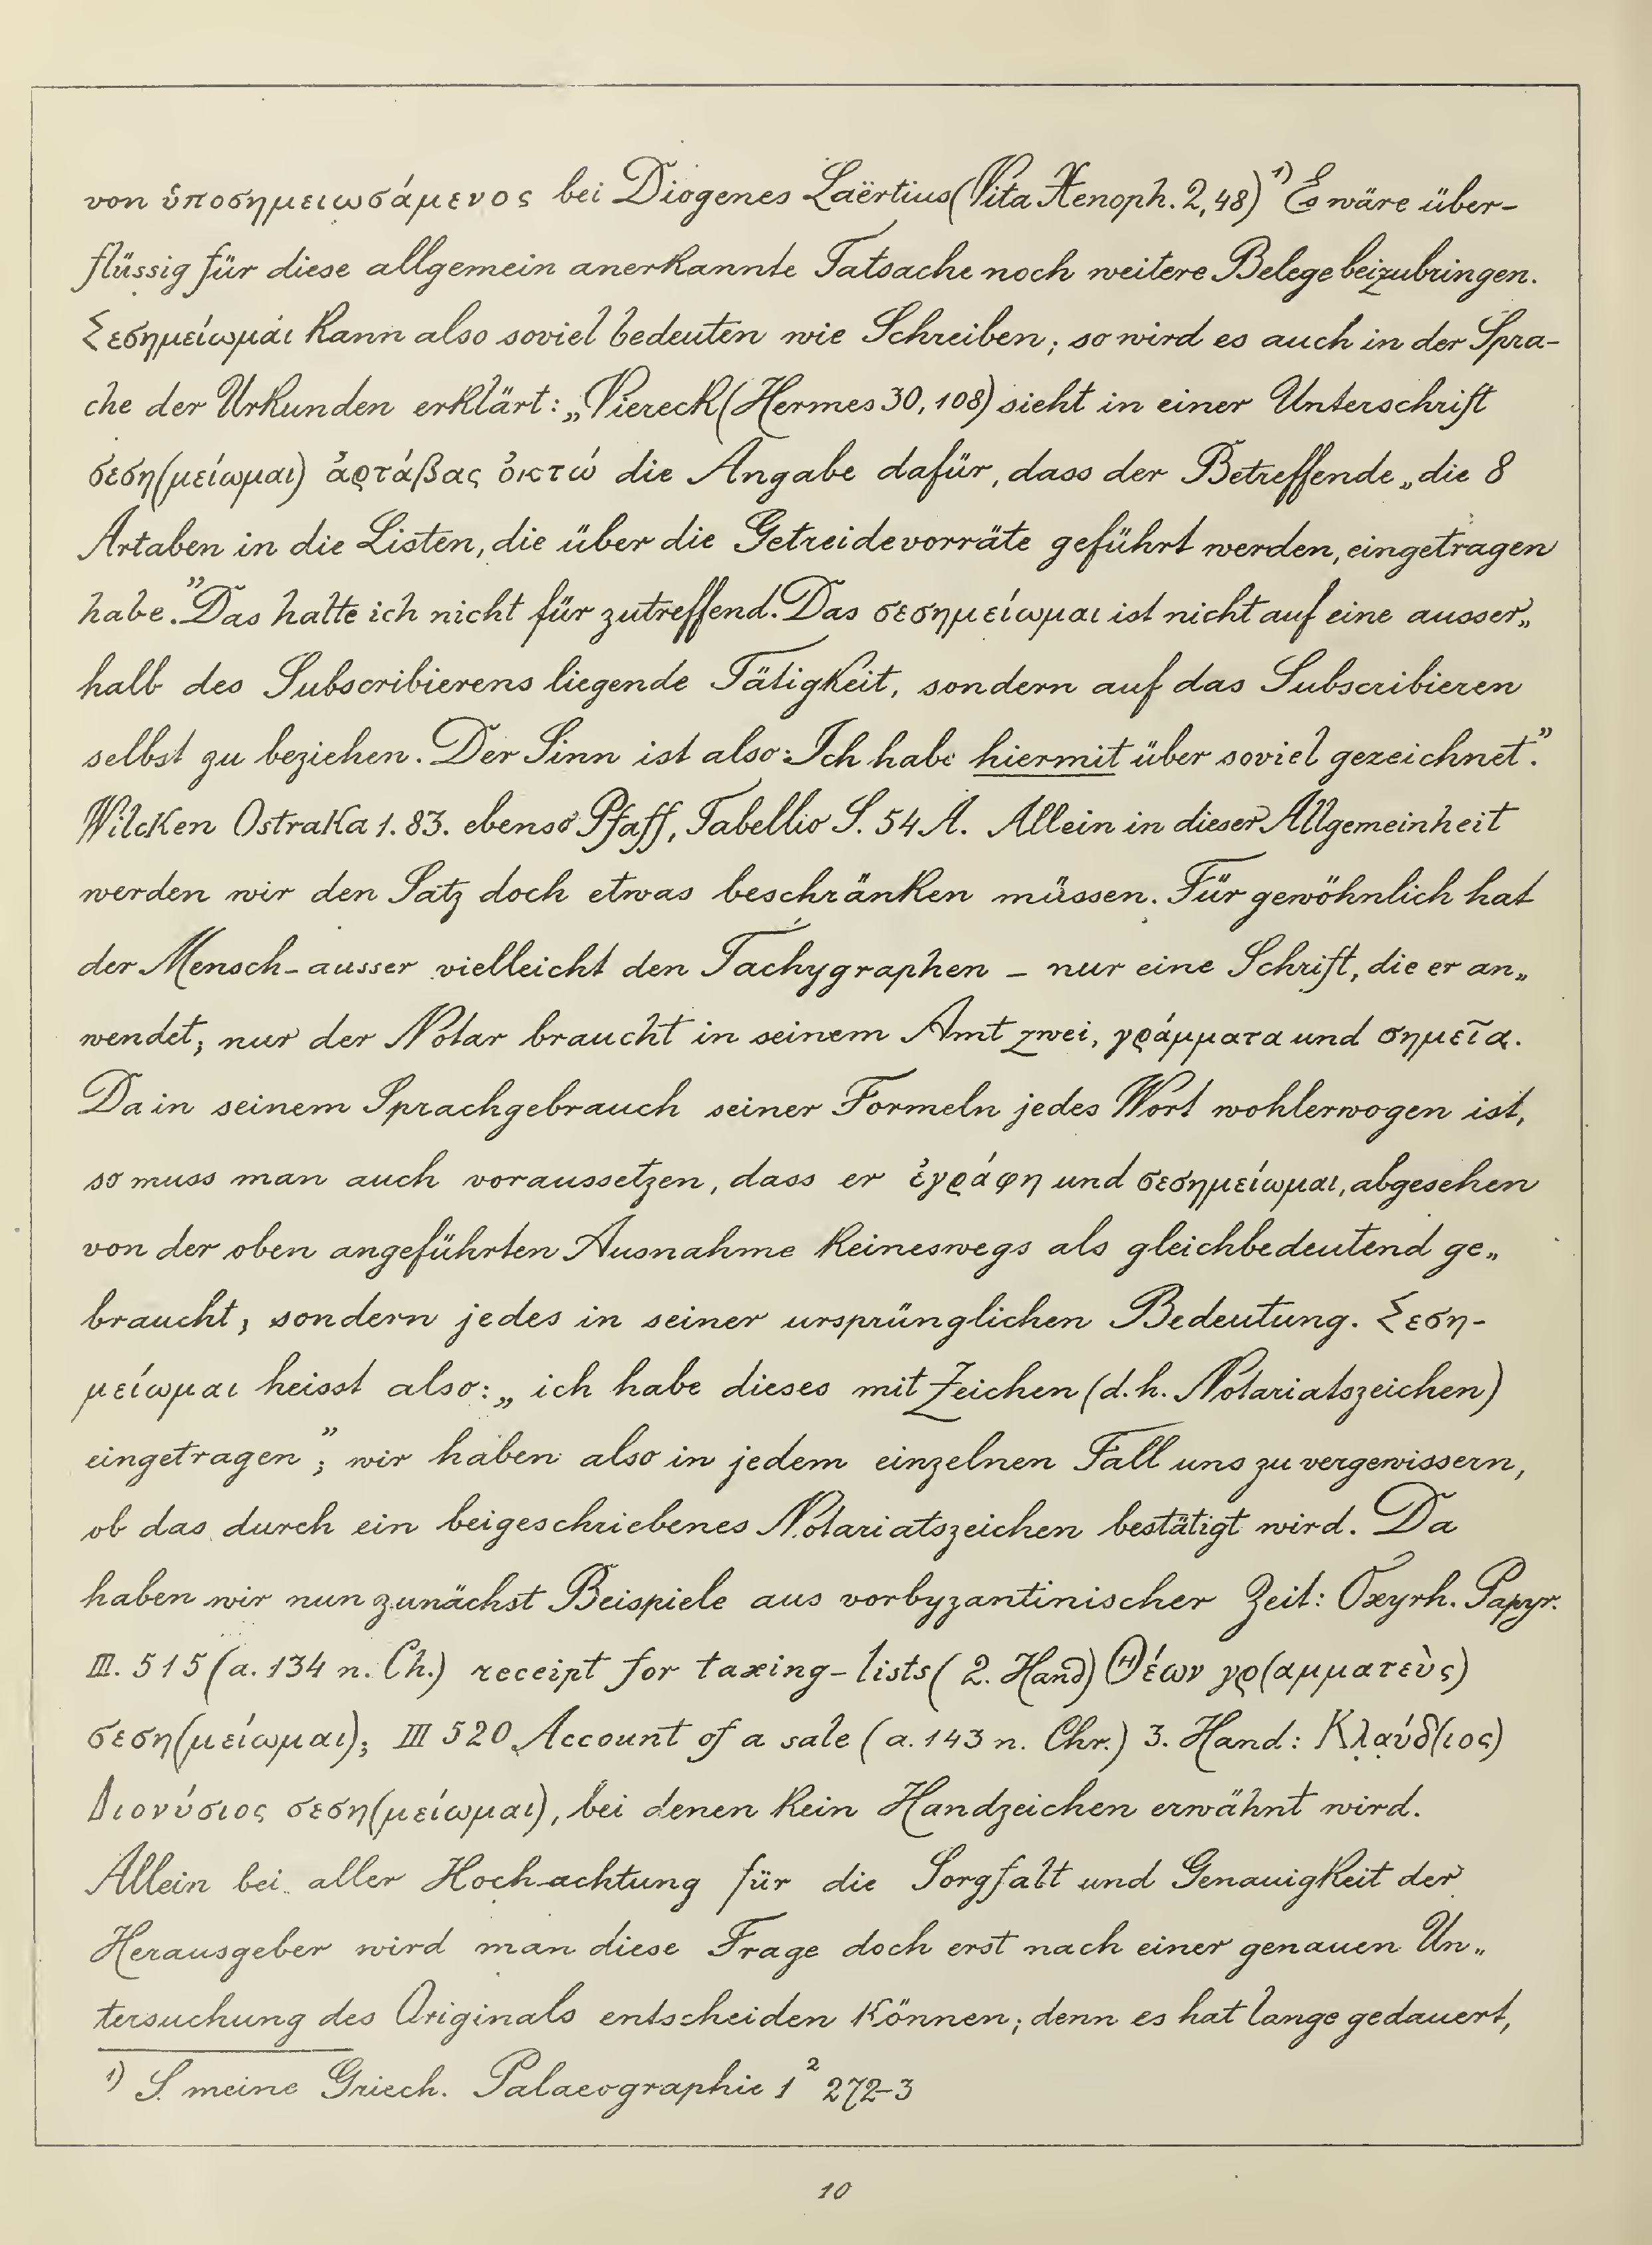 von ὑποσημειωσάμενος bei Diogenes Laërtius (Vita Xenoph. 2, 48)¹) Es wäre über-
flüssig für diese allgemein anerkannte Tatsache noch weitere Belege beizubringen.
Σεσημείωμαι kann also soviel bedeuten wie Schreiben; so wird es auch in der Spra-
che der Urkunden erklärt: „Viereck (Hermes 30, 108) sieht in einer Unterschrift
σεση(μείωμαι) ἀρτάβας ὀκτώ die Angabe dafür, dass der Betreffende „die 8
Artaben in die Listen, die über die Getreidevorräte geführt werden, eingetragen
habe.” Das halte ich nicht für zutreffend. Das σεσημείωμαι ist nicht auf eine ausser„
halb des Subscribierens liegende Tätigkeit, sondern auf das Subscribieren
selbst zu beziehen. Der Sinn ist also: Ich habe hiermit über soviel gezeichnet”.
Wilcken Ostraka 1. 83. ebenso Pfaff, Tabellio S. 54 A. Allein in dieser Allgemeinheit
werden wir den Satz doch etwas beschränken müssen. Für gewöhnlich hat
der Mensch - ausser vielleicht den Tachygraphen - nur eine Schrift, die er an„
wendet; nur der Notar braucht in seinem Amt zwei, γράμματα und σημεῖα.
Da in seinem Sprachgebrauch seiner Formeln jedes Wort wohlerwogen ist,
so muss man auch voraussetzen, dass er ἐγράφη und σεσημείωμαι, abgesehen
von der oben angeführten Ausnahme keineswegs als gleichbedeutend ge„
braucht, sondern jedes in seiner ursprünglichen Bedeutung. Σεση-
μείωμαι heisst also: „ich habe dieses mit Zeichen (d. h. Notariatszeichen)
eingetragen”; wir haben also in jedem einzelnen Fall uns zu vergewissern,
ob das durch ein beigeschriebenes Notariatszeichen bestätigt wird. Da
haben wir nun zunächst Beispiele aus vorbyzantinischer Zeit: Oxyrh. Papyr.
III. 515 (a. 134 n. Ch.) receipt for taxing-lists (2. Hand) Θέων γρ(αμματεὺς)
σεση(μείωμαι); III 520 Account of a sale (a. 143 n. Chr.) 3. Hand: Κλαύδ(ιος)
Διονύσιος σεση(μείωμαι), bei denen kein Handzeichen erwähnt wird.
Allein bei aller Hochachtung für die Sorgfalt und Genauigkeit der
Herausgeber wird man diese Frage doch erst nach einer genauen Un„
tersuchung des Originals entscheiden können; denn es hat lange gedauert,
¹) S. meine Griech. Palaeographie 1² 272-3
10